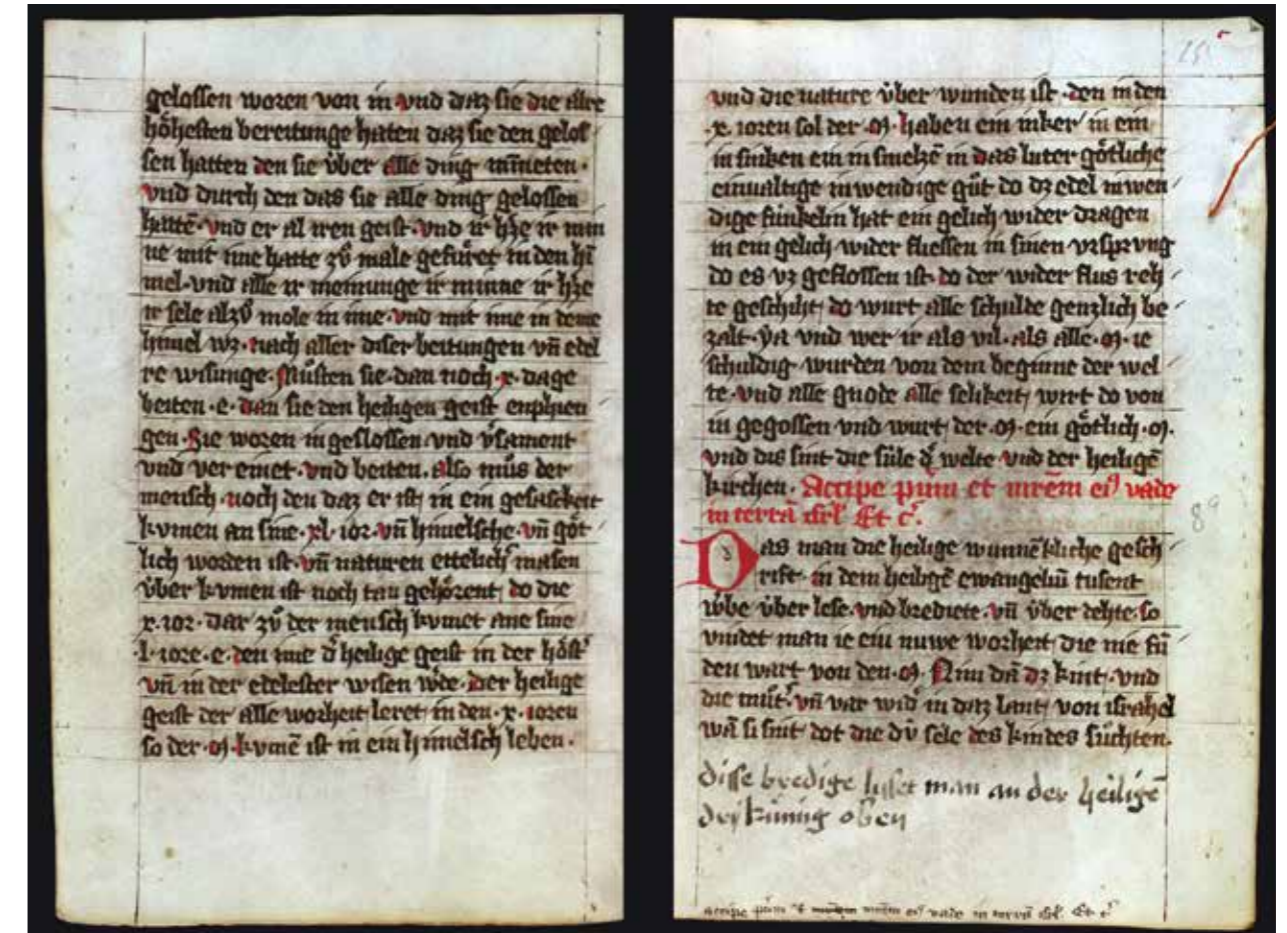 gelossen woren von in vnd daz sie die alre
höhesten bereitunge hatten daz sie den gelos
sen hatten den sie v́ber alle ding minneten·
vnd durch den das sie alle ding gelossen
hattē· vnd er al iren geist· vnd ir h̄ze ir min
ne mit ime hatte zů male gefůret in den hī
mel· vnd alle ir meinunge ir minne ir h̄ze
ir sele alzů mole in ime· vnd mit ime in deme
himel wz· nach aller diser beitungen vn̄ edel
re wisunge· Můsten sie dan noch ·x· dage
beiten ·e· dan sie den heiligen geist enphien
gen· Sie woren in geslossen vnd v̓sament
vnd ver einet· vnd beiten· also můs der
mensch· noch den daz er ist in ein gesasckeit
kvmen an sine ·xl· ior· vn̄ himelsche· vn̄ göt
lich worden ist· vn̄ naturen ettelich̓ masen
v́ber kvmen ist noch tan gehörent do die
x· ior· dar zů der mensch kvmet ane sine
·l· iore· e· den ime d̓ heilige geist in der höst̓
vn̄ in der edelester wisen w̓de· der heilige
geist der alle worheit leret· in den ·x· ioren
so der ·m̄· kvmē ist in ein himelsch leben·
vnd die nature v́ber wunden ist· den in den
·x· ioren sol der ·m̄· haben ein inker in ein
in sinken ein in smelzē in das luter götliche
einualtige inwendige gůt do dz edel inwen
dige fúnkelin hat ein gelich wider dragen
in ein gelich wider fliessen in sinen vrsprvng
do es vz geflossen ist· do der wider flus reh
te geschiht do wurt alle schulde genzlich be
zalt· ÿa vnd wer ir als vil· als alle ·m̄· ie
schuldig wurden von dem beginne der wel
te· vnd alle gnode alle selikeit wirt do von
in gegossen vnd wurt der ·m̄· ein götlich ·m̄·
vnd dis sint die súle d̓ welte vnd der heiligē
kirchen· Accipe pu̅m et mr̄em ei9 vade
in terrā isrl̄ Et c̓·
Das man die heilige wunnēkliche gesch
rift in dem heiligē ewangelii tusent
w̓be v́ber lese· vnd brediete· vn̄ v́ber dehte· so
vindet man ie ein nuwe worheit die nie fū
den wart von den ·m̄· Nim dn̄ dz kint· vnd
die můt̓ vn̄ var wid̓ in daz lant von israhel
wā si sint dot die dv́ sele des kindes sůchten·
disse bredige lisset man an der heiligē
drÿ kúnig oben
89
accipe pu̅m et mr̄em ei9 vade in terrā isrl̄ Et c̓